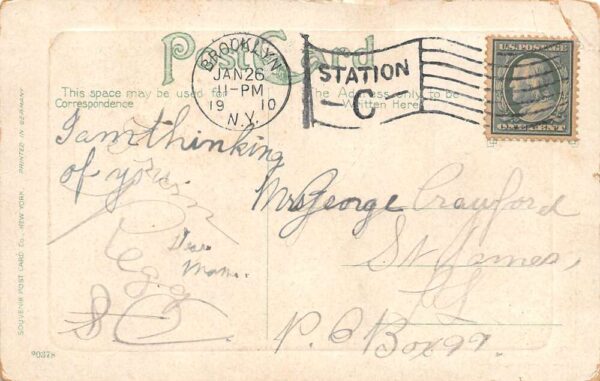 Post Card
BROOKLYN
JAN 26
11-PM
1910
N.Y.
STATION
C
U.S. POSTAGE
ONE CENT
This space may be used for
Correspondence
The Address only to be
Written Here
I am thinking
of you
Dear
Mam.
Mrs George Crawford
St James,
L I
P. O Box 99.
SOUVENIR POST CARD CO., NEW YORK. PRINTED IN GERMANY